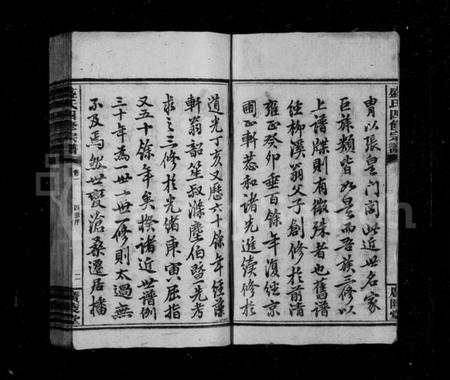 胄以張皇門閭此近世名家
巨族類皆如是而吾族三修以
上譜牒則有微殊者也舊譜
經柳溪翁父子創修於前清
雍正癸卯垂百餘年復經京
圃正軒惹和諸先進續修於
道光丁亥又歷六十餘年經藻
軒翁韶笙叔滌塵伯暨先考
求之三修於光緒庚寅屈指
又五十餘年矣揆諸近世譜例
三十年為一世一世一修則太過無
不及焉然世變滄桑遷居播
盛氏四修宗譜
卷一
四修序
二
廣陵堂